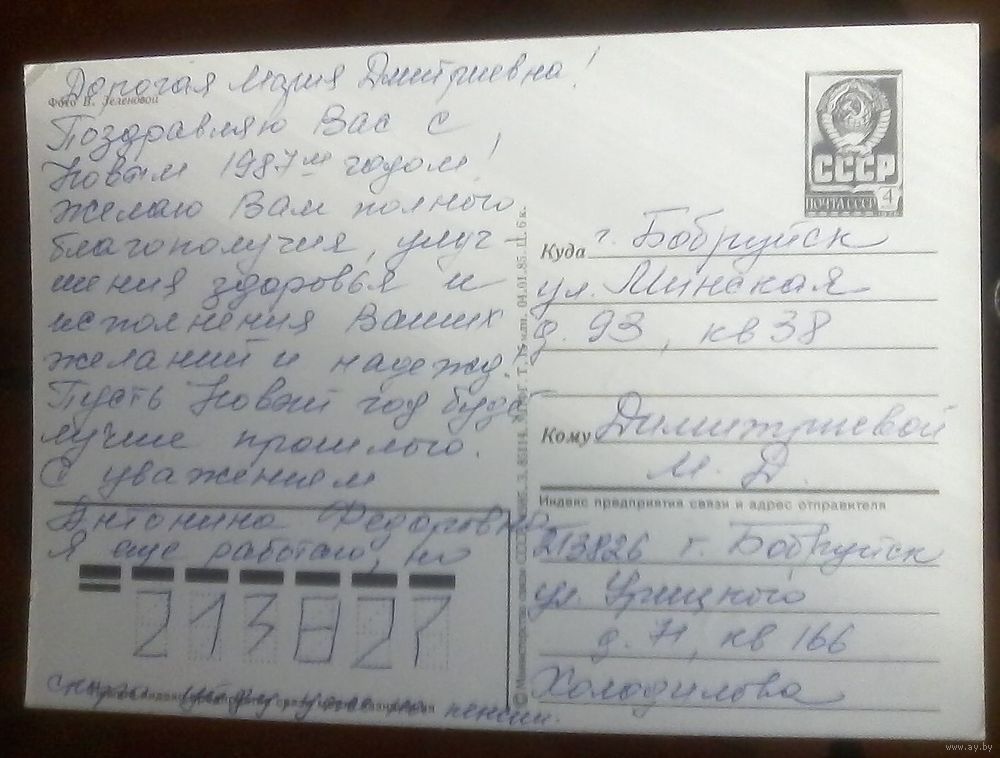 Дорогая Мария Дмитриевна!
Фото В. Зеленовой
Поздравляю Вас с
Новым 1987м годом!
Желаю Вам полного
благополучия, улуч-
шения здоровья и
исполнения Ваших
желаний и надежд.
Пусть Новый год будет
лучше прошлого.
С уважением
Антонина Федоровна
Я еще работаю, но
213827
скоро уйду уже на пенсию.
СССР
ПОЧТА СССР 4
Куда г. Бобруйск
ул. Минская
д. 93, кв 38
Кому Димитриевой
М. Д.
Индекс предприятия связи и адрес отправителя
213826 г. Бобруйск
ул. Урицкого
д. 71, кв 166
Холодилова
© Министерство связи СССР 04.01.85. Ц. 6 к.
www.ay.by